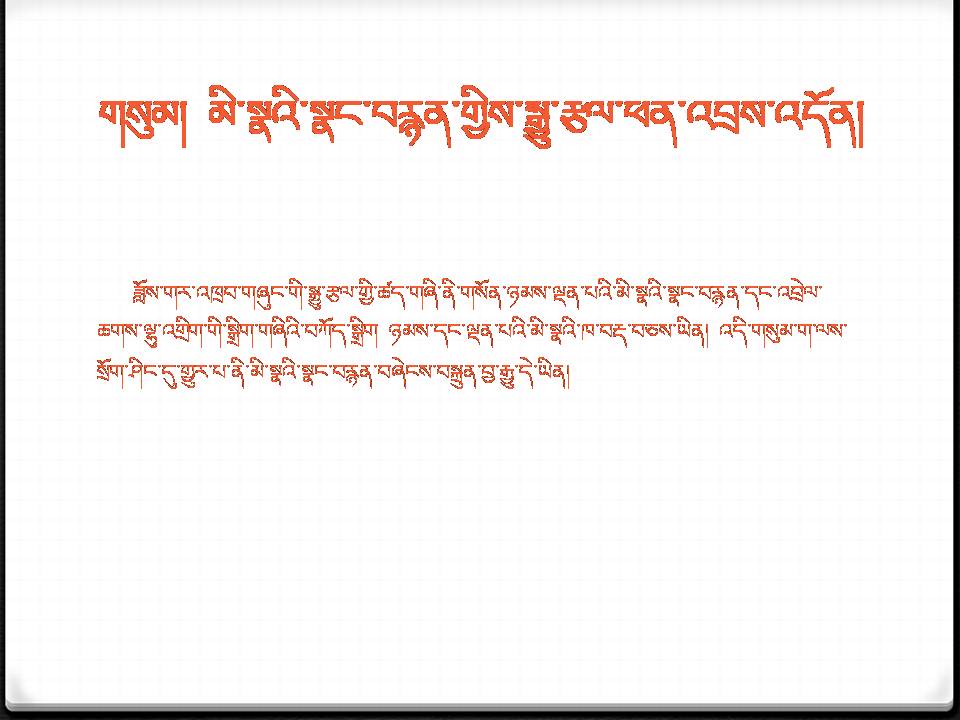 གསུམ། མི་སྣའི་སྣང་བརྙན་གྱིས་སྒྱུ་རྩལ་ཕན་འབྲས་འདོན།
ཟློས་གར་འཁྲབ་གཞུང་གི་སྒྱུ་རྩལ་གྱི་ཚད་གཞི་ནི་གསོན་ཉམས་ལྡན་པའི་མི་སྣའི་སྣང་བརྙན་དང་འབྲེལ་
ཆགས་ལྷུ་འགྲིག་གི་སྒྲིག་གཞིའི་བཀོད་སྒྲིག ཉམས་དང་ལྡན་པའི་མི་སྣའི་ཁ་བརྡ་བཅས་ཡིན། འདི་གསུམ་གྱི་ལས་
སྲོག་ཤིང་དུ་གྱུར་པ་ནི་མི་སྣའི་སྣང་བརྙན་བཞེངས་བསྐྲུན་བྱ་རྒྱུ་དེ་ཡིན།